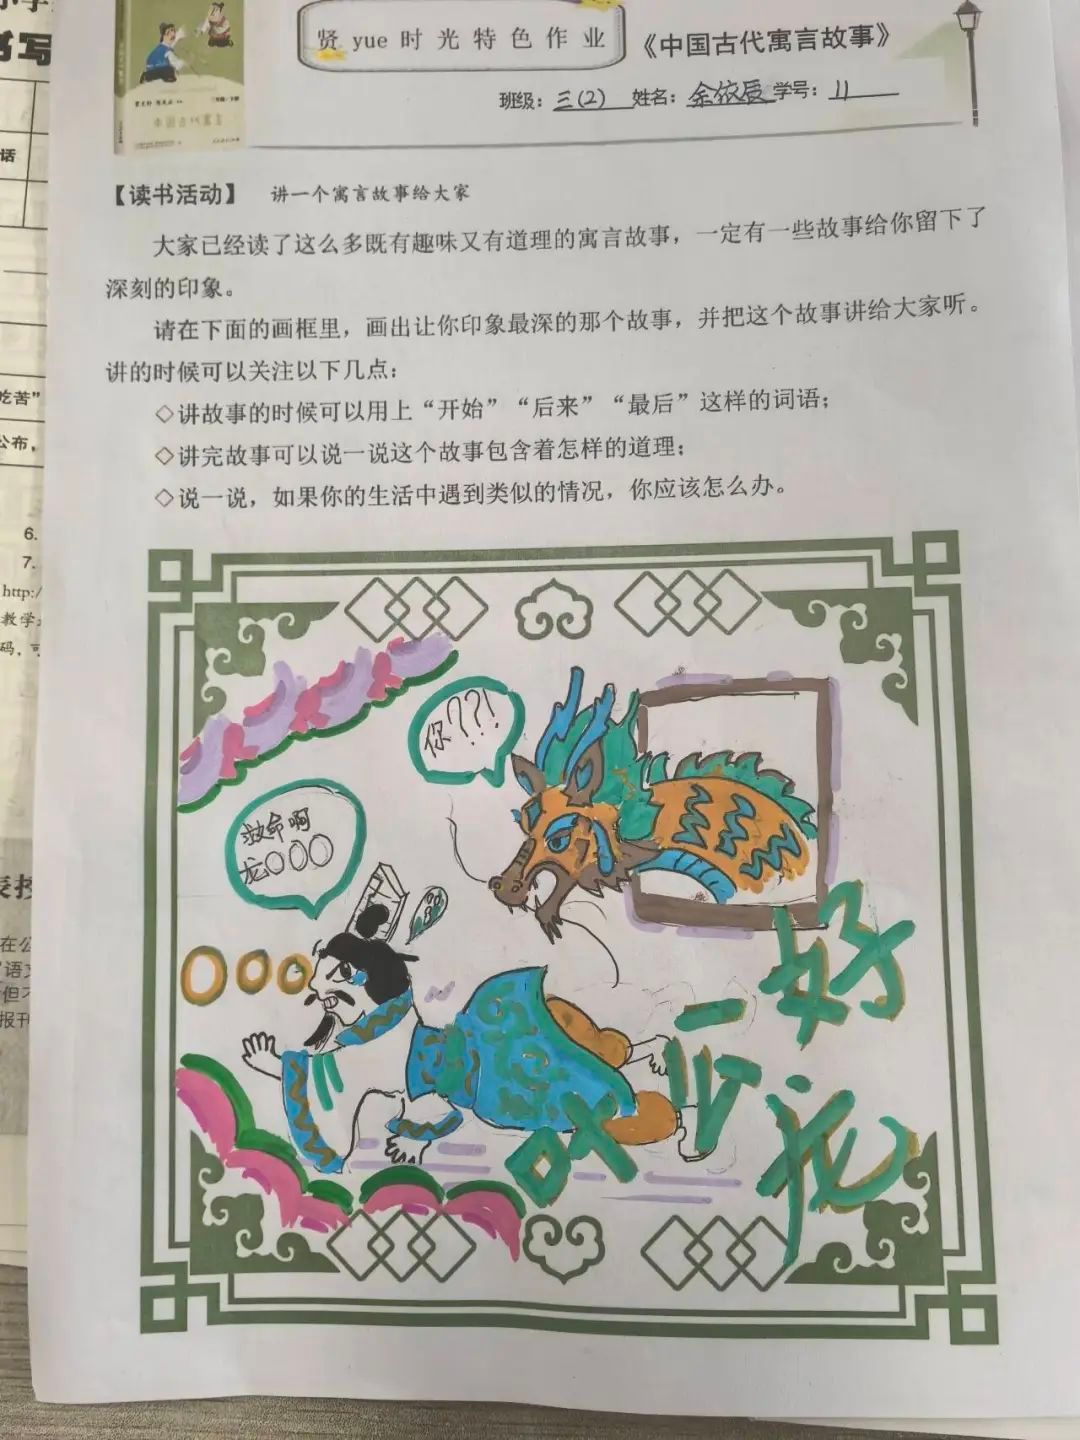 贤 yue 时 光 特 色 作 业
《中国古代寓言故事》
班级：三(2) 姓名：余依辰 学号：11
中国古代寓言
书写
话
吃苦”
公布，
6.
7.
http:/
教学
码，可
在公
语文
但不
报刊
【读书活动】 讲一个寓言故事给大家
大家已经读了这么多既有趣味又有道理的寓言故事，一定有一些故事给你留下了
深刻的印象。
请在下面的画框里，画出让你印象最深的那个故事，并把这个故事讲给大家听。
讲的时候可以关注以下几点：
◇讲故事的时候可以用上“开始”“后来”“最后”这样的词语；
◇讲完故事可以说一说这个故事包含着怎样的道理；
◇说一说，如果你的生活中遇到类似的情况，你应该怎么办。
你???!
救命啊
龙○○○
叶公好龙